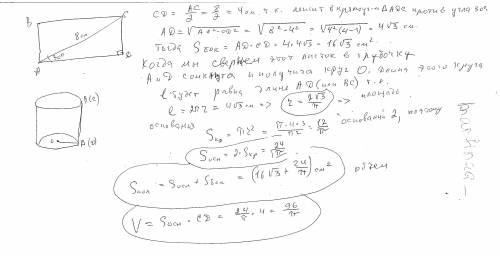 B
C
8см
30°
A
D
B(C)
A(D)
CD = AC/2 = 8/2 = 4см т.к. лежит в прямоуг-м ΔADC против угла 30°
AD = √AC²-CD² = √8²-4² = √4²(4-1) = 4√3 см.
Тогда Sбок = AD·CD = 4·4√3 = 16√3 см².
Когда мы свернем этот листок в трубочку
A и D сомкнутся и получится круг O. Длина этого круга
l будет равна длине AD (или BC) т.к.
l = 2πr = 4√3 см => r = 2√3/π => площадь
основания Sкр = πr² = π·4·3/π² = 12/π оснований 2, поэтому
Sосн = 2·Sкр = 24/π
Sпол = Sосн + Sбок = (16√3 + 24/π) см² объем
V = Sосн · CD = 24/π · 4 = 96/π